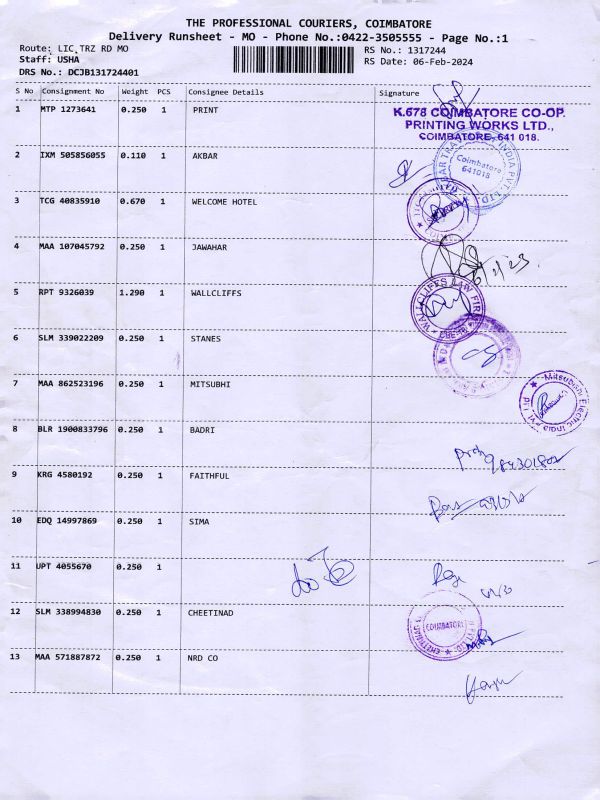 THE PROFESSIONAL COURIERS, COIMBATORE
Delivery Runsheet - MO - Phone No.:0422-3505555 - Page No.:1
Route: LIC,TRZ RD MO
RS No.: 1317244
Staff: USHA
RS Date: 06-Feb-2024
DRS No.: DCJB131724401
S No Consignment No Weight PCS Consignee Details Signature
1 MTP 1273641 0.250 1 PRINT
K.678 COIMBATORE CO-OP.
PRINTING WORKS LTD.,
COIMBATORE, 641 018.
2 IXM 505856055 0.110 1 AKBAR
INDIA PVT. LTD.
Coimbatore
641018
3 TCG 40835910 0.670 1 WELCOME HOTEL
4 MAA 107045792 0.250 1 JAWAHAR
5 RPT 9326039 1.290 1 WALLCLIFFS
WALLCLIFFS LAW FIRM
6 SLM 339022209 0.250 1 STANES
7 MAA 862523196 0.250 1 MITSUBHI
Mitsubishi Electric India Pvt.
8 BLR 1900833796 0.250 1 BADRI
9 KRG 4580192 0.250 1 FAITHFUL
10 EDQ 14997869 0.250 1 SIMA
11 UPT 4055670 0.250 1
12 SLM 338994830 0.250 1 CHEETINAD
COIMBATORE
13 MAA 571887872 0.250 1 NRD CO